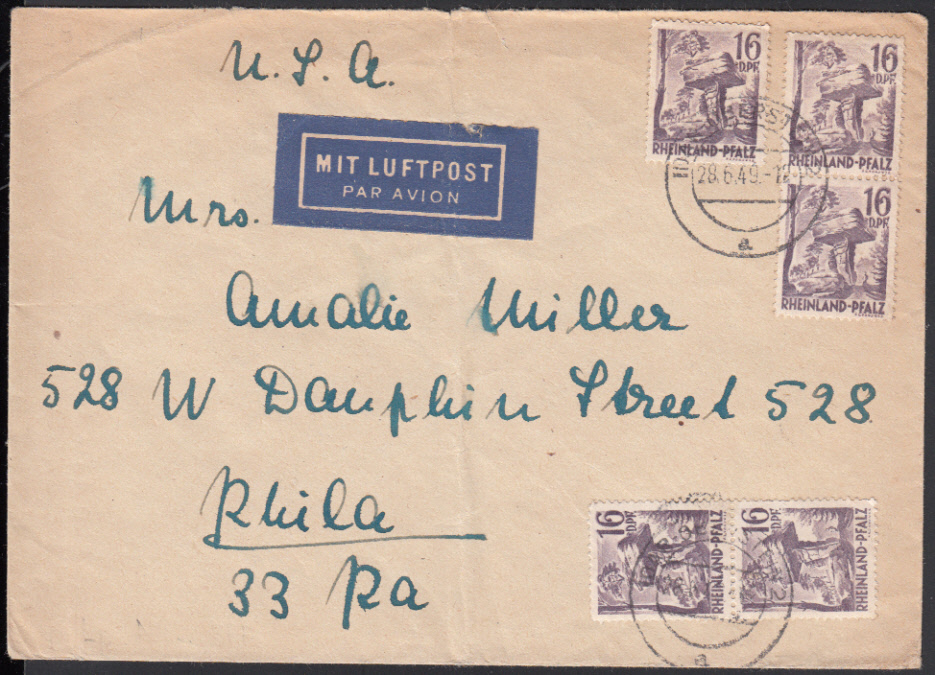 U. S. A.
16
D.PF.
RHEINLAND-PFALZ
16
D.PF.
RHEINLAND-PFALZ
28.6.49.-12
a
16
D.PF.
RHEINLAND-PFALZ
MIT LUFTPOST
PAR AVION
Mrs.
Amalie Miller
528 W Dauphin Street 528
Phila
33 Pa
16
D.PF.
RHEINLAND-PFALZ
16
D.PF.
RHEINLAND-PFALZ
a